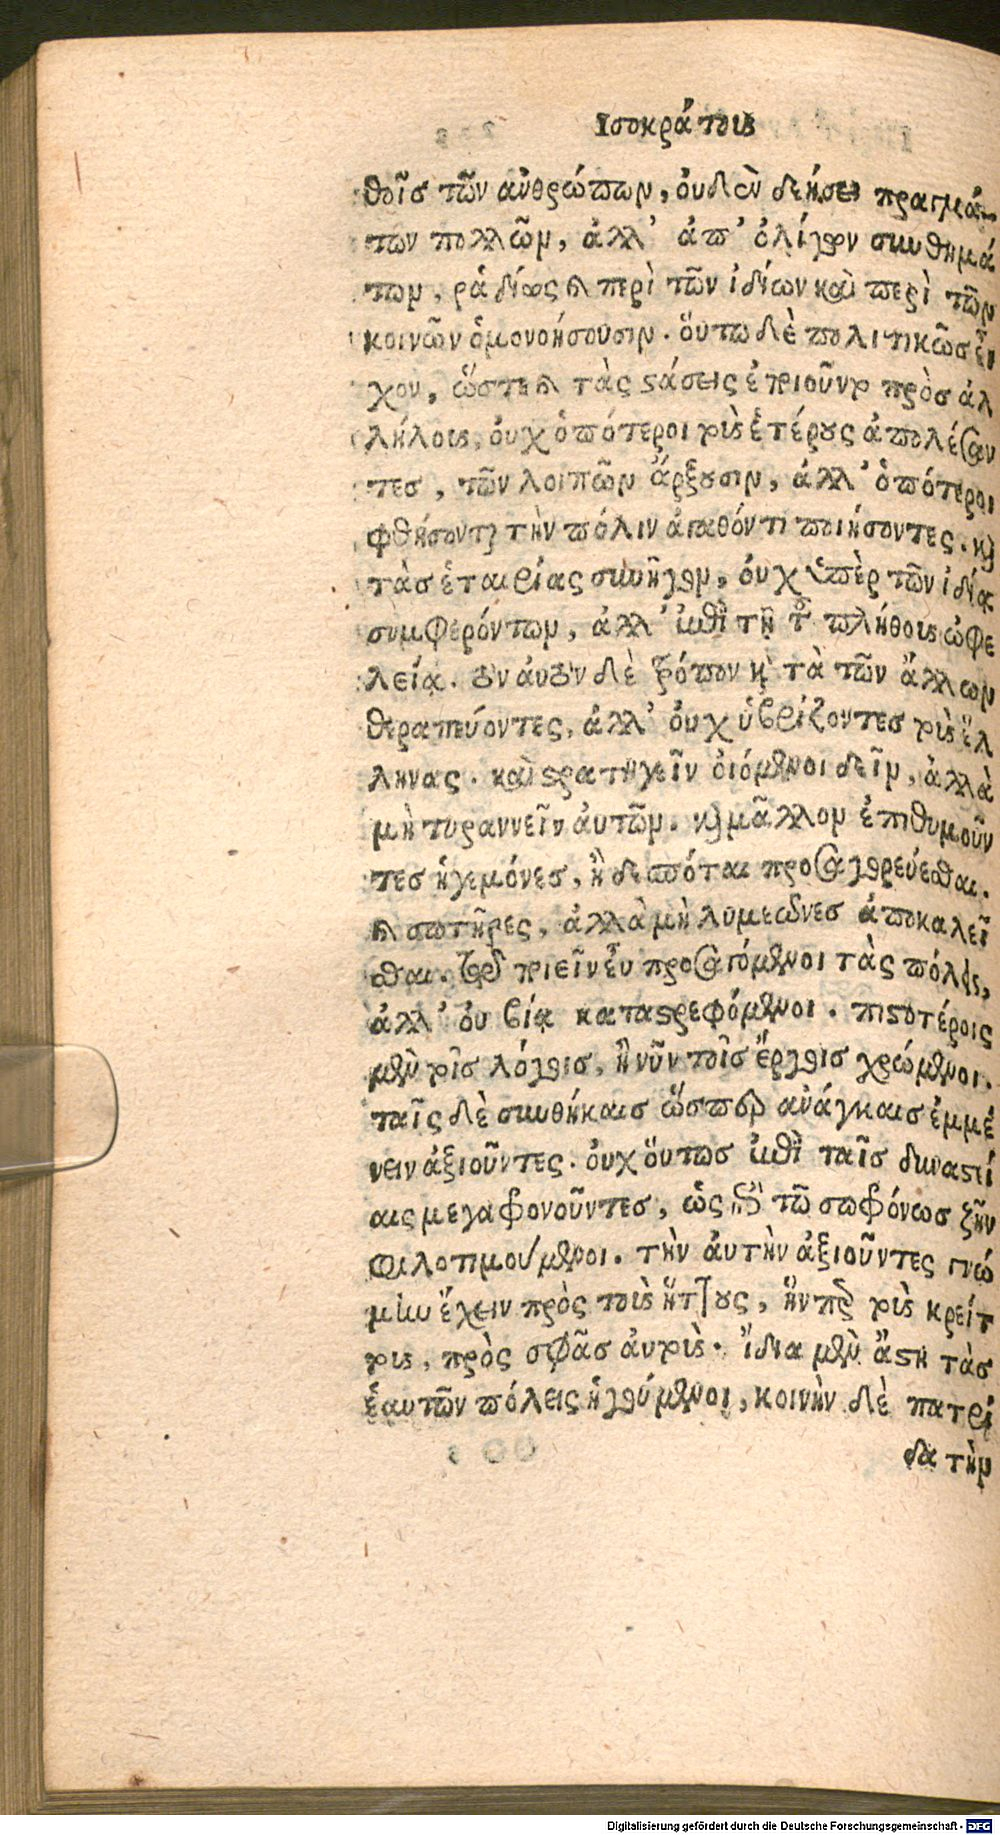 Ισοκράτους
θοῖσ τῶν ἀνθρώπων, ὀυδὲν δεήσει πραγμά-
των πολλῶν, ἀλλ' ἀπ' ὀλίγων συνθημά
των, ῥᾳδίως καὶ περὶ τῶν ἰδίων καὶ περὶ τῶν
κοινῶν ὁμονοήσουσιν. ὅυτω δὲ πολιτικῶσ εἶ
χον, ὥστε καὶ τὰς στάσεις ἐποιοῦντο πρὸσ ἀλ
λήλους, ὀυχ ὁπότεροι τοὺσ ἑτέρους ἀπολέσαν
τεσ, τῶν λοιπῶν ἄρξουσιν, ἀλλ' ὁπότεροι
φθήσονται τὴν πόλιν ἀγαθόν τι ποιήσοντες. καὶ
τὰσ ἑταιρίας συνῆγον, ὀυχ ὑπὲρ τῶν ἰδίᾳ
συμφερόντων, ἀλλ' ἐπὶ τῇ τοῦ πλήθους ὠφε
λείᾳ. τὸν ἀυτὸν δὲ τρόπον καὶ τὰ τῶν ἄλλων
θεραπεύοντες, ἀλλ' ὀυχ ὑβρίζοντεσ τοὺσ ἕλ
ληνας. καὶ στρατηγεῖν ὀιόμενοι δεῖν, ἀλλὰ
μὴ τυραννεῖν ἀυτῶν. καὶ μᾶλλον ἐπιθυμοῦν
τεσ ἡγεμόνεσ, ἢ δεσπόται προσαγορεύεσθαι.
καὶ σωτῆρες, ἀλλὰ μὴ λυμεῶνεσ ἀποκαλεῖ
σθαι. τῷ ποιεῖν εὖ προσαγόμενοι τὰς πόλεις,
ἀλλ' ὀυ βίᾳ καταστρεφόμενοι. πιστοτέροις
μὲν τοῖσ λόγοισ, ἢ νῦν τοῖσ ἔργοισ χρώμενοι.
ταῖς δὲ συνθήκαισ ὥσπερ ἀνάγκαισ ἐμμέ
νειν ἀξιοῦντες. ὀυχ ὅυτωσ ἐπὶ ταῖσ δυναστεί
αις μεγαφρονοῦντεσ, ὡς ἐπὶ τῶ σωφρόνωσ ζῆν
φιλοτιμούμενοι. τὴν ἀυτὴν ἀξιοῦντες γνώ
μην ἔχειν πρὸς τοὺσ ἥττους, ἥνπερ τοὺσ κρείτ
τους, πρὸς σφᾶσ ἀυτοὺσ. ἴδια μὲν ἄστη τὰσ
ἑαυτῶν πόλεις ἡγούμενοι, κοινὴν δὲ πατρί
δα τὴν
Digitalisierung gefördert durch die Deutsche Forschungsgemeinschaft - DFG